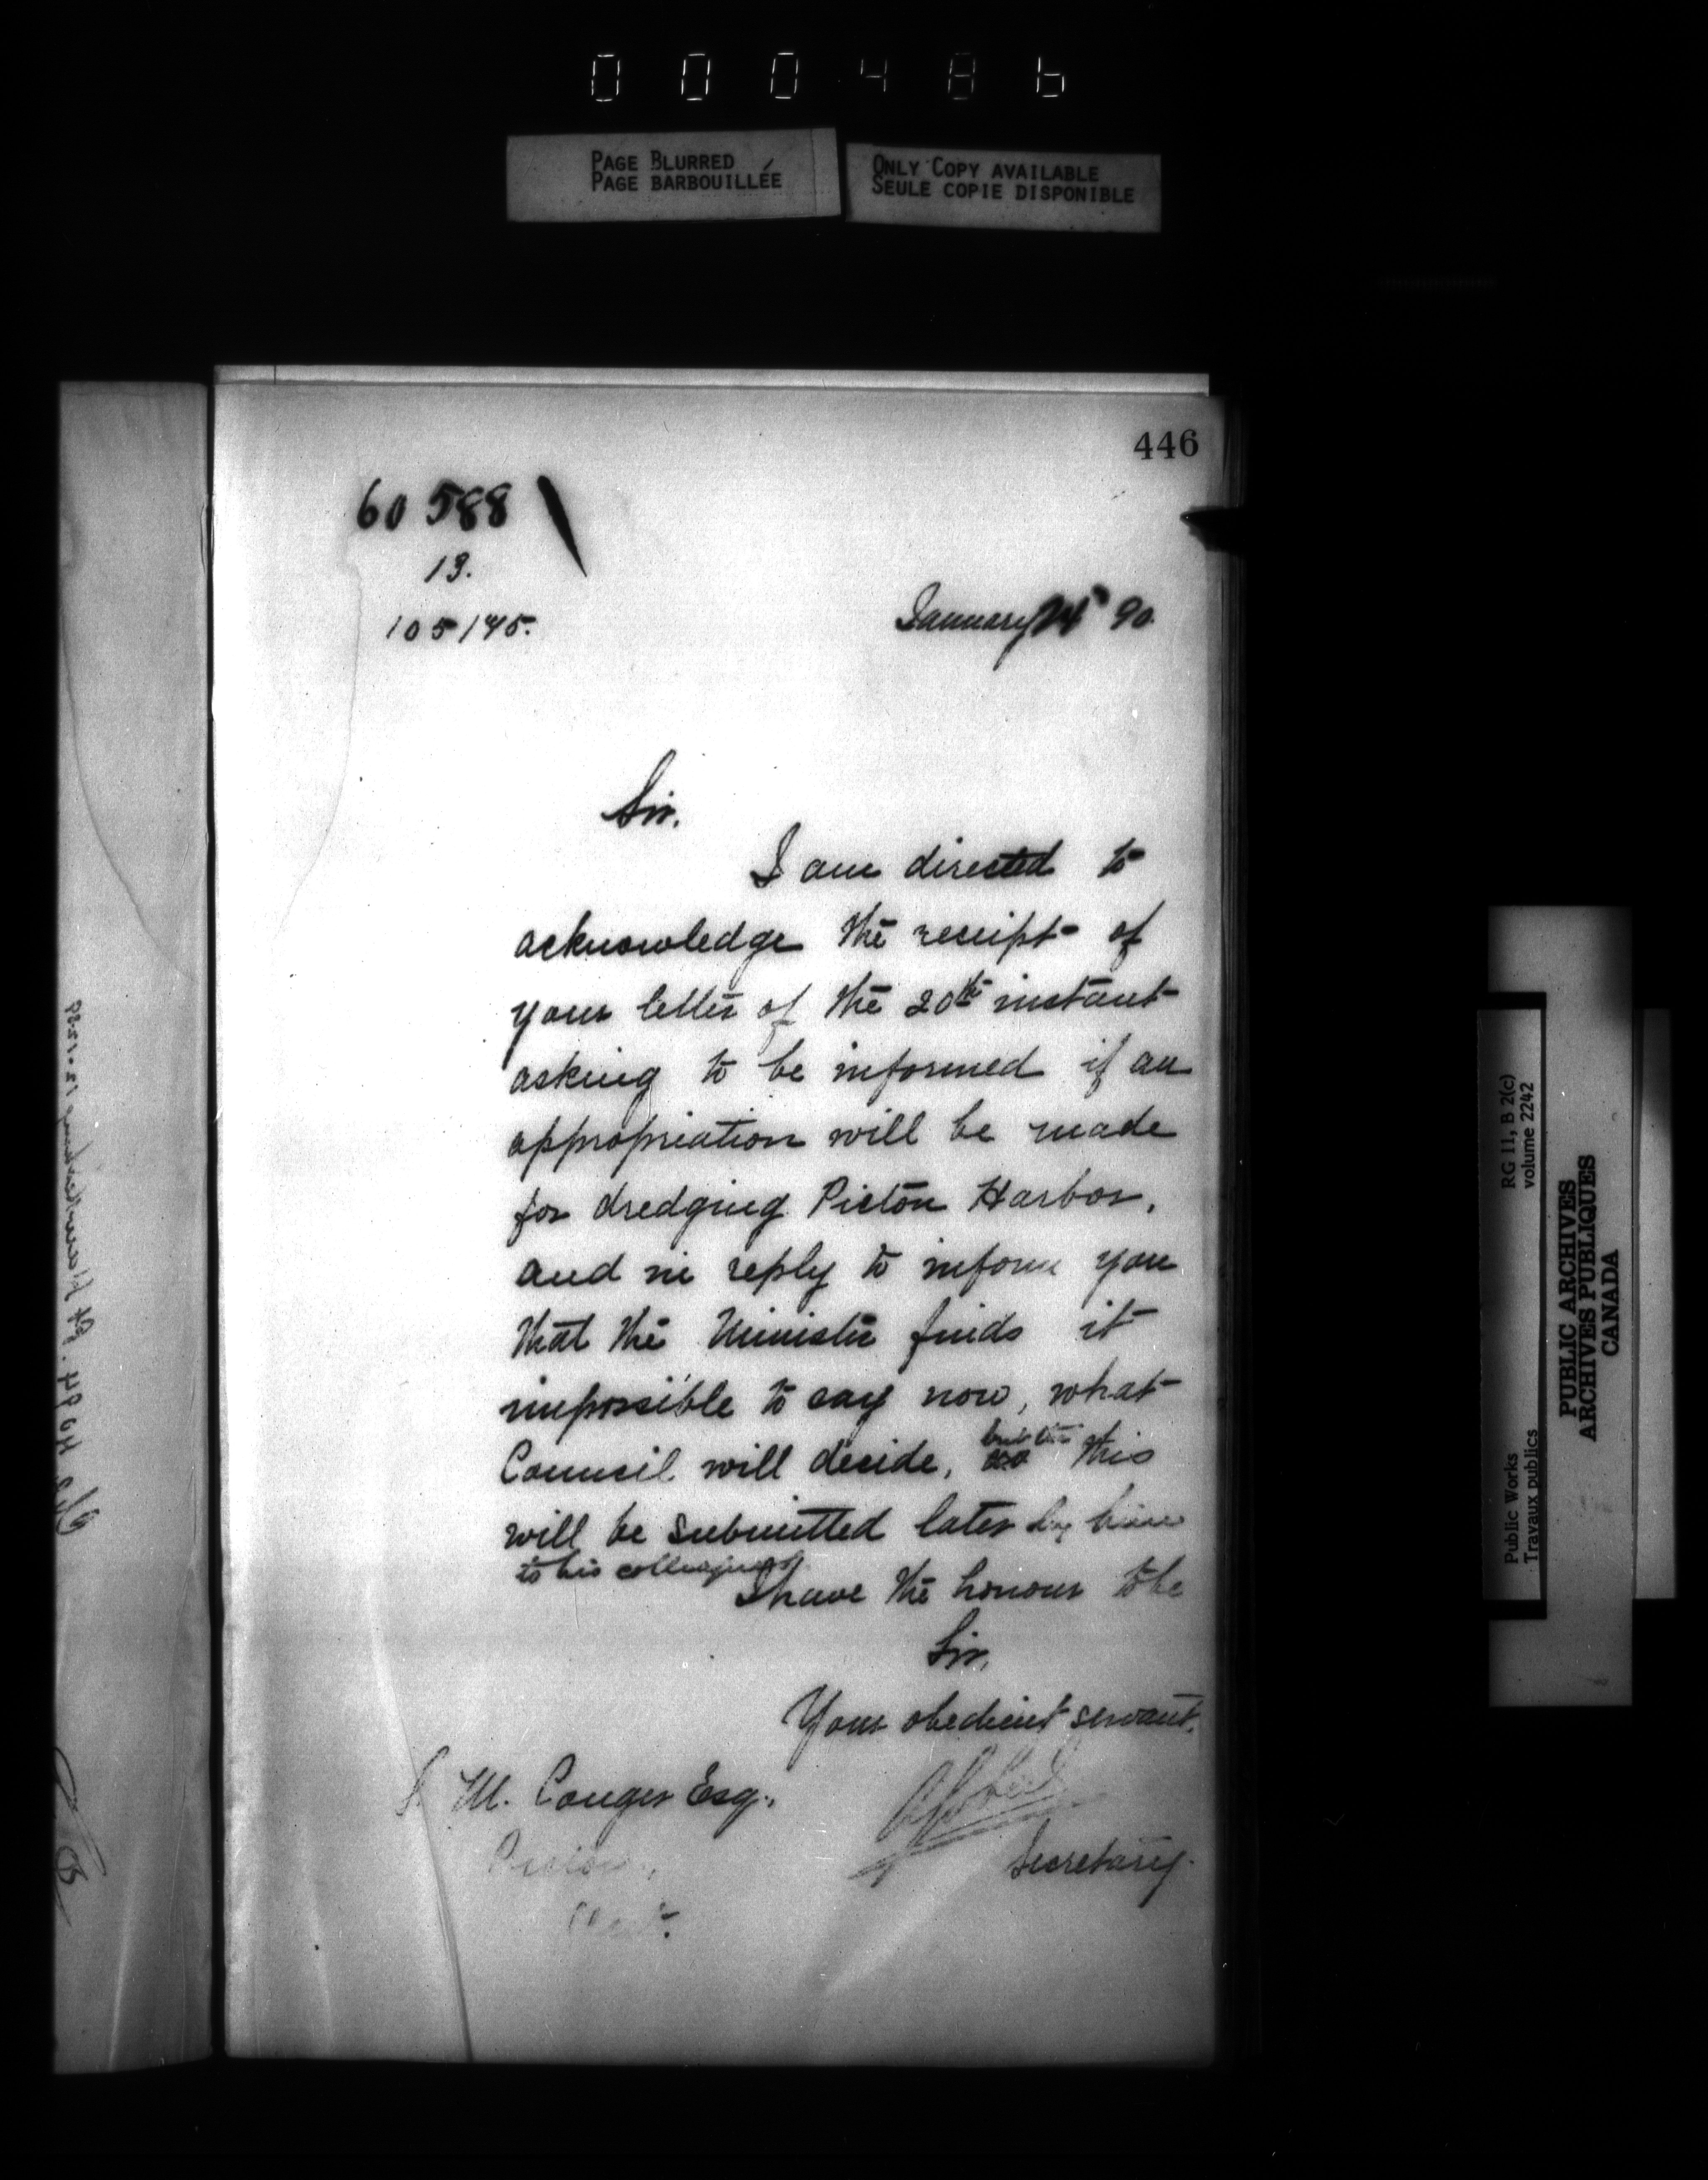 000486
PAGE BLURRED
PAGE BARBOUILLÉE
ONLY COPY AVAILABLE
SEULE COPIE DISPONIBLE
446
60588
13.
105145.
January 90.
Sir.
I am directed to
acknowledge the receipt of
your letter of the 20th instant
asking to be informed if an
appropriation will be made
for dredging Picton Harbor,
and in reply to inform you
that the Minister finds it
impossible to say now, what
Council will decide, but this
will be submitted later by him
to his colleagues
I have the honour to be
Sir,
Your obedient servant.
S. M. Conger Esq.,
Picton,
Ont.
Secretary.
RG 11, B 2(c)
volume 2242
Public Works
Travaux publics
PUBLIC ARCHIVES
ARCHIVES PUBLIQUES
CANADA